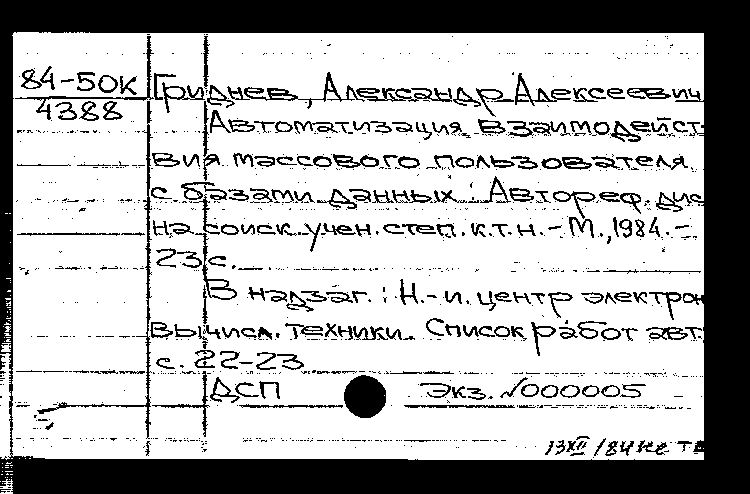 84-50к Гриднев, Александр Алексеевич
4388
Автоматизация взаимодейст-
вия массового пользователя
с базами данных : Автореф. дис
на соиск. учен. степ. к.т.н. - М., 1984. -
23 с.
В надзаг. : Н.-и. центр электрон
вычисл. техники. Список работ авт.
с. 22-23
ДСП Экз. №000005
13 XII /84